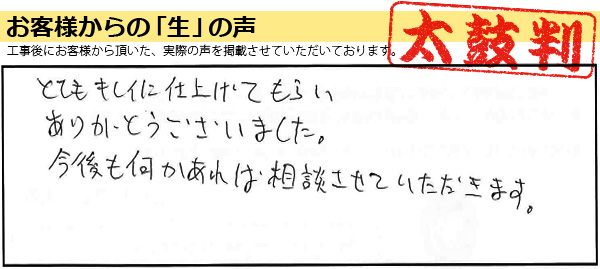 お客様からの「生」の声
工事後にお客様から頂いた、実際の声を掲載させていただいております。
太鼓判
とてもキレイに仕上げてもらい
ありがとうございました。
今後も何かあれば相談させていただきます。